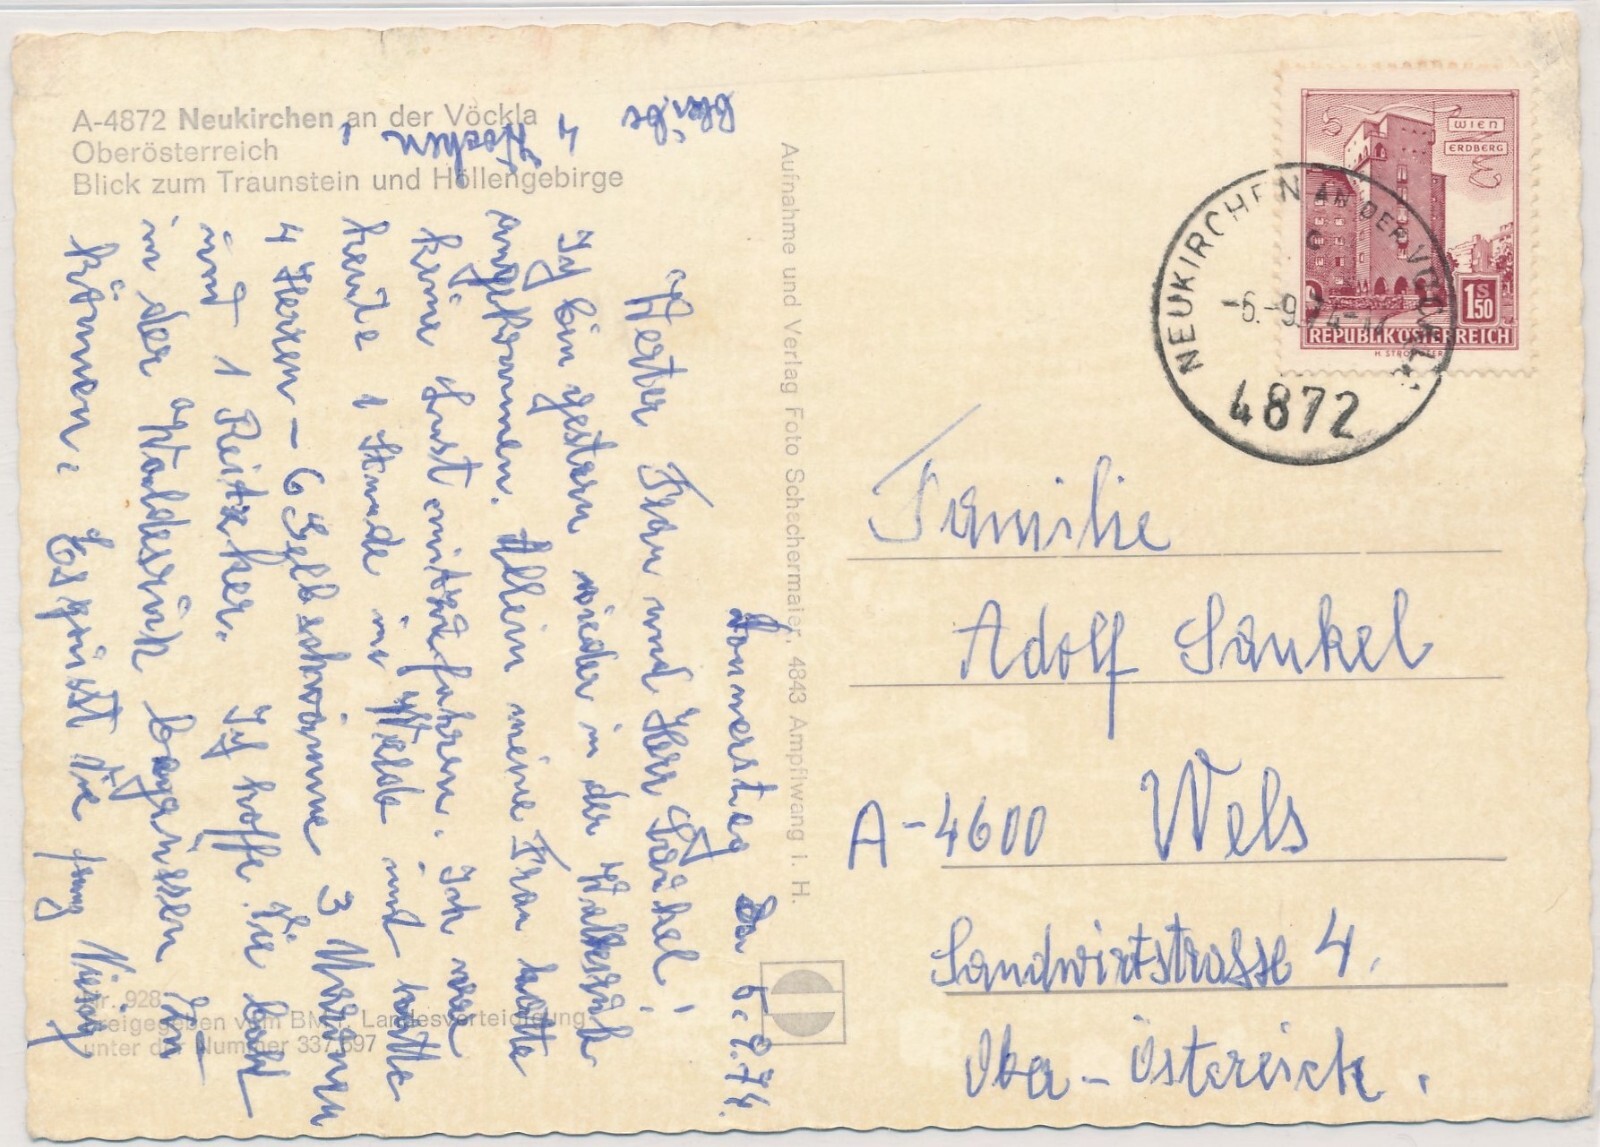 A-4872 Neukirchen an der Vöckla
Oberösterreich
Blick zum Traunstein und Höllengebirge
bleibe
4
Wochen
Donnerstag den 5.9.74.
Werter Frau und Herr Sankel!
Ich bin gestern wieder in der Waldesruh
angekommen. Allein meine Frau hatte
keine Lust mitzufahren. Ich war
heute 1 Stunde im Walde und hatte
4 Herren - 6 Gelbschwämme 3
und 1 Reitzker. Ich hoffe Sie bald
in der Waldesruh begrüssen zu
können. Es grüsst Sie
Nr. 928
Freigegeben vom BM f. Landesverteidigung
unter der Nummer 337.597
Aufnahme und Verlag Foto Schachermaier, 4843 Ampflwang i. H.
WIEN
ERDBERG
1 S 50
REPUBLIK ÖSTERREICH
NEUKIRCHEN AN DER VÖCKLA
-6.-9.74-
4872
Familie
Adolf Sankel
A-4600 Wels
Sandwirtstrasse 4.
Ober-Östereich.